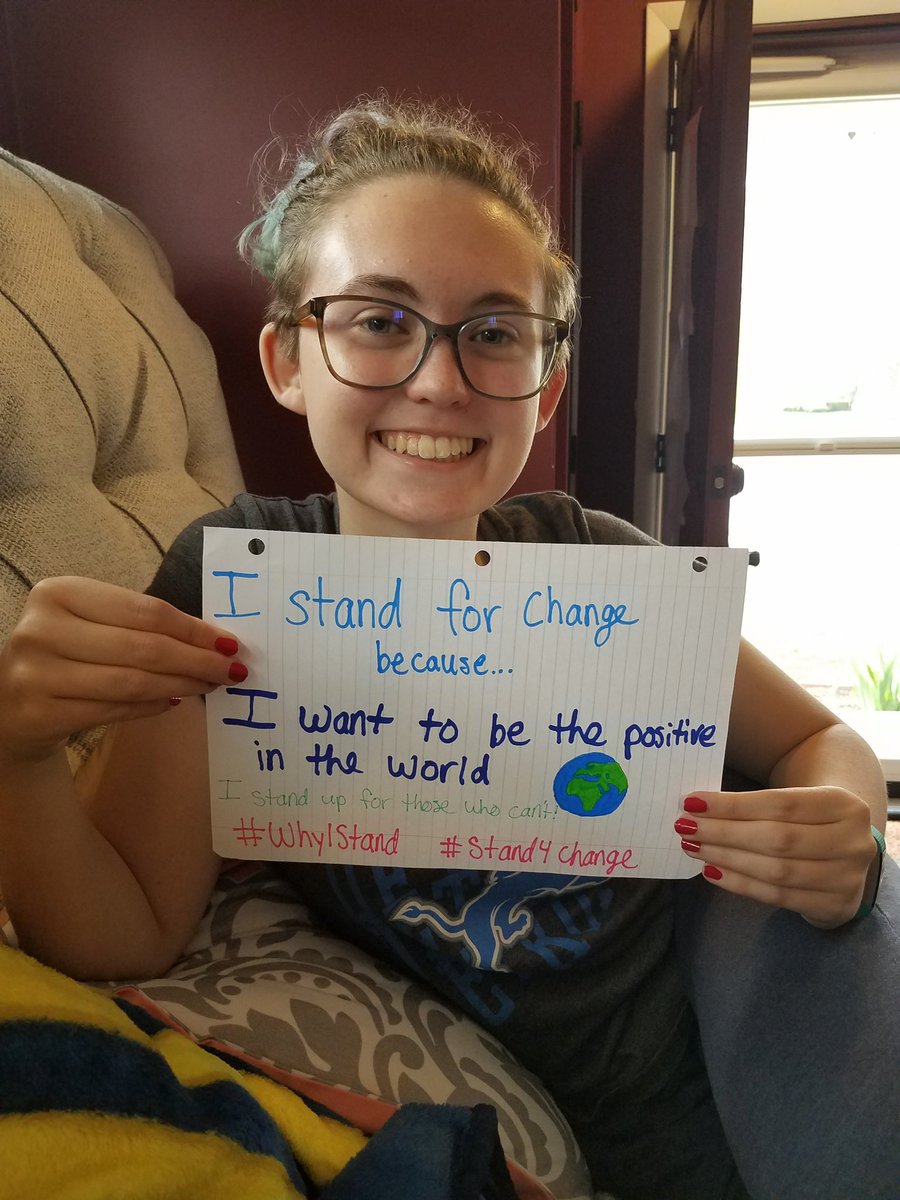 I stand for Change
because...
I want to be the positive
in the world
I stand up for those who can't!
#WhyIStand #Stand4change